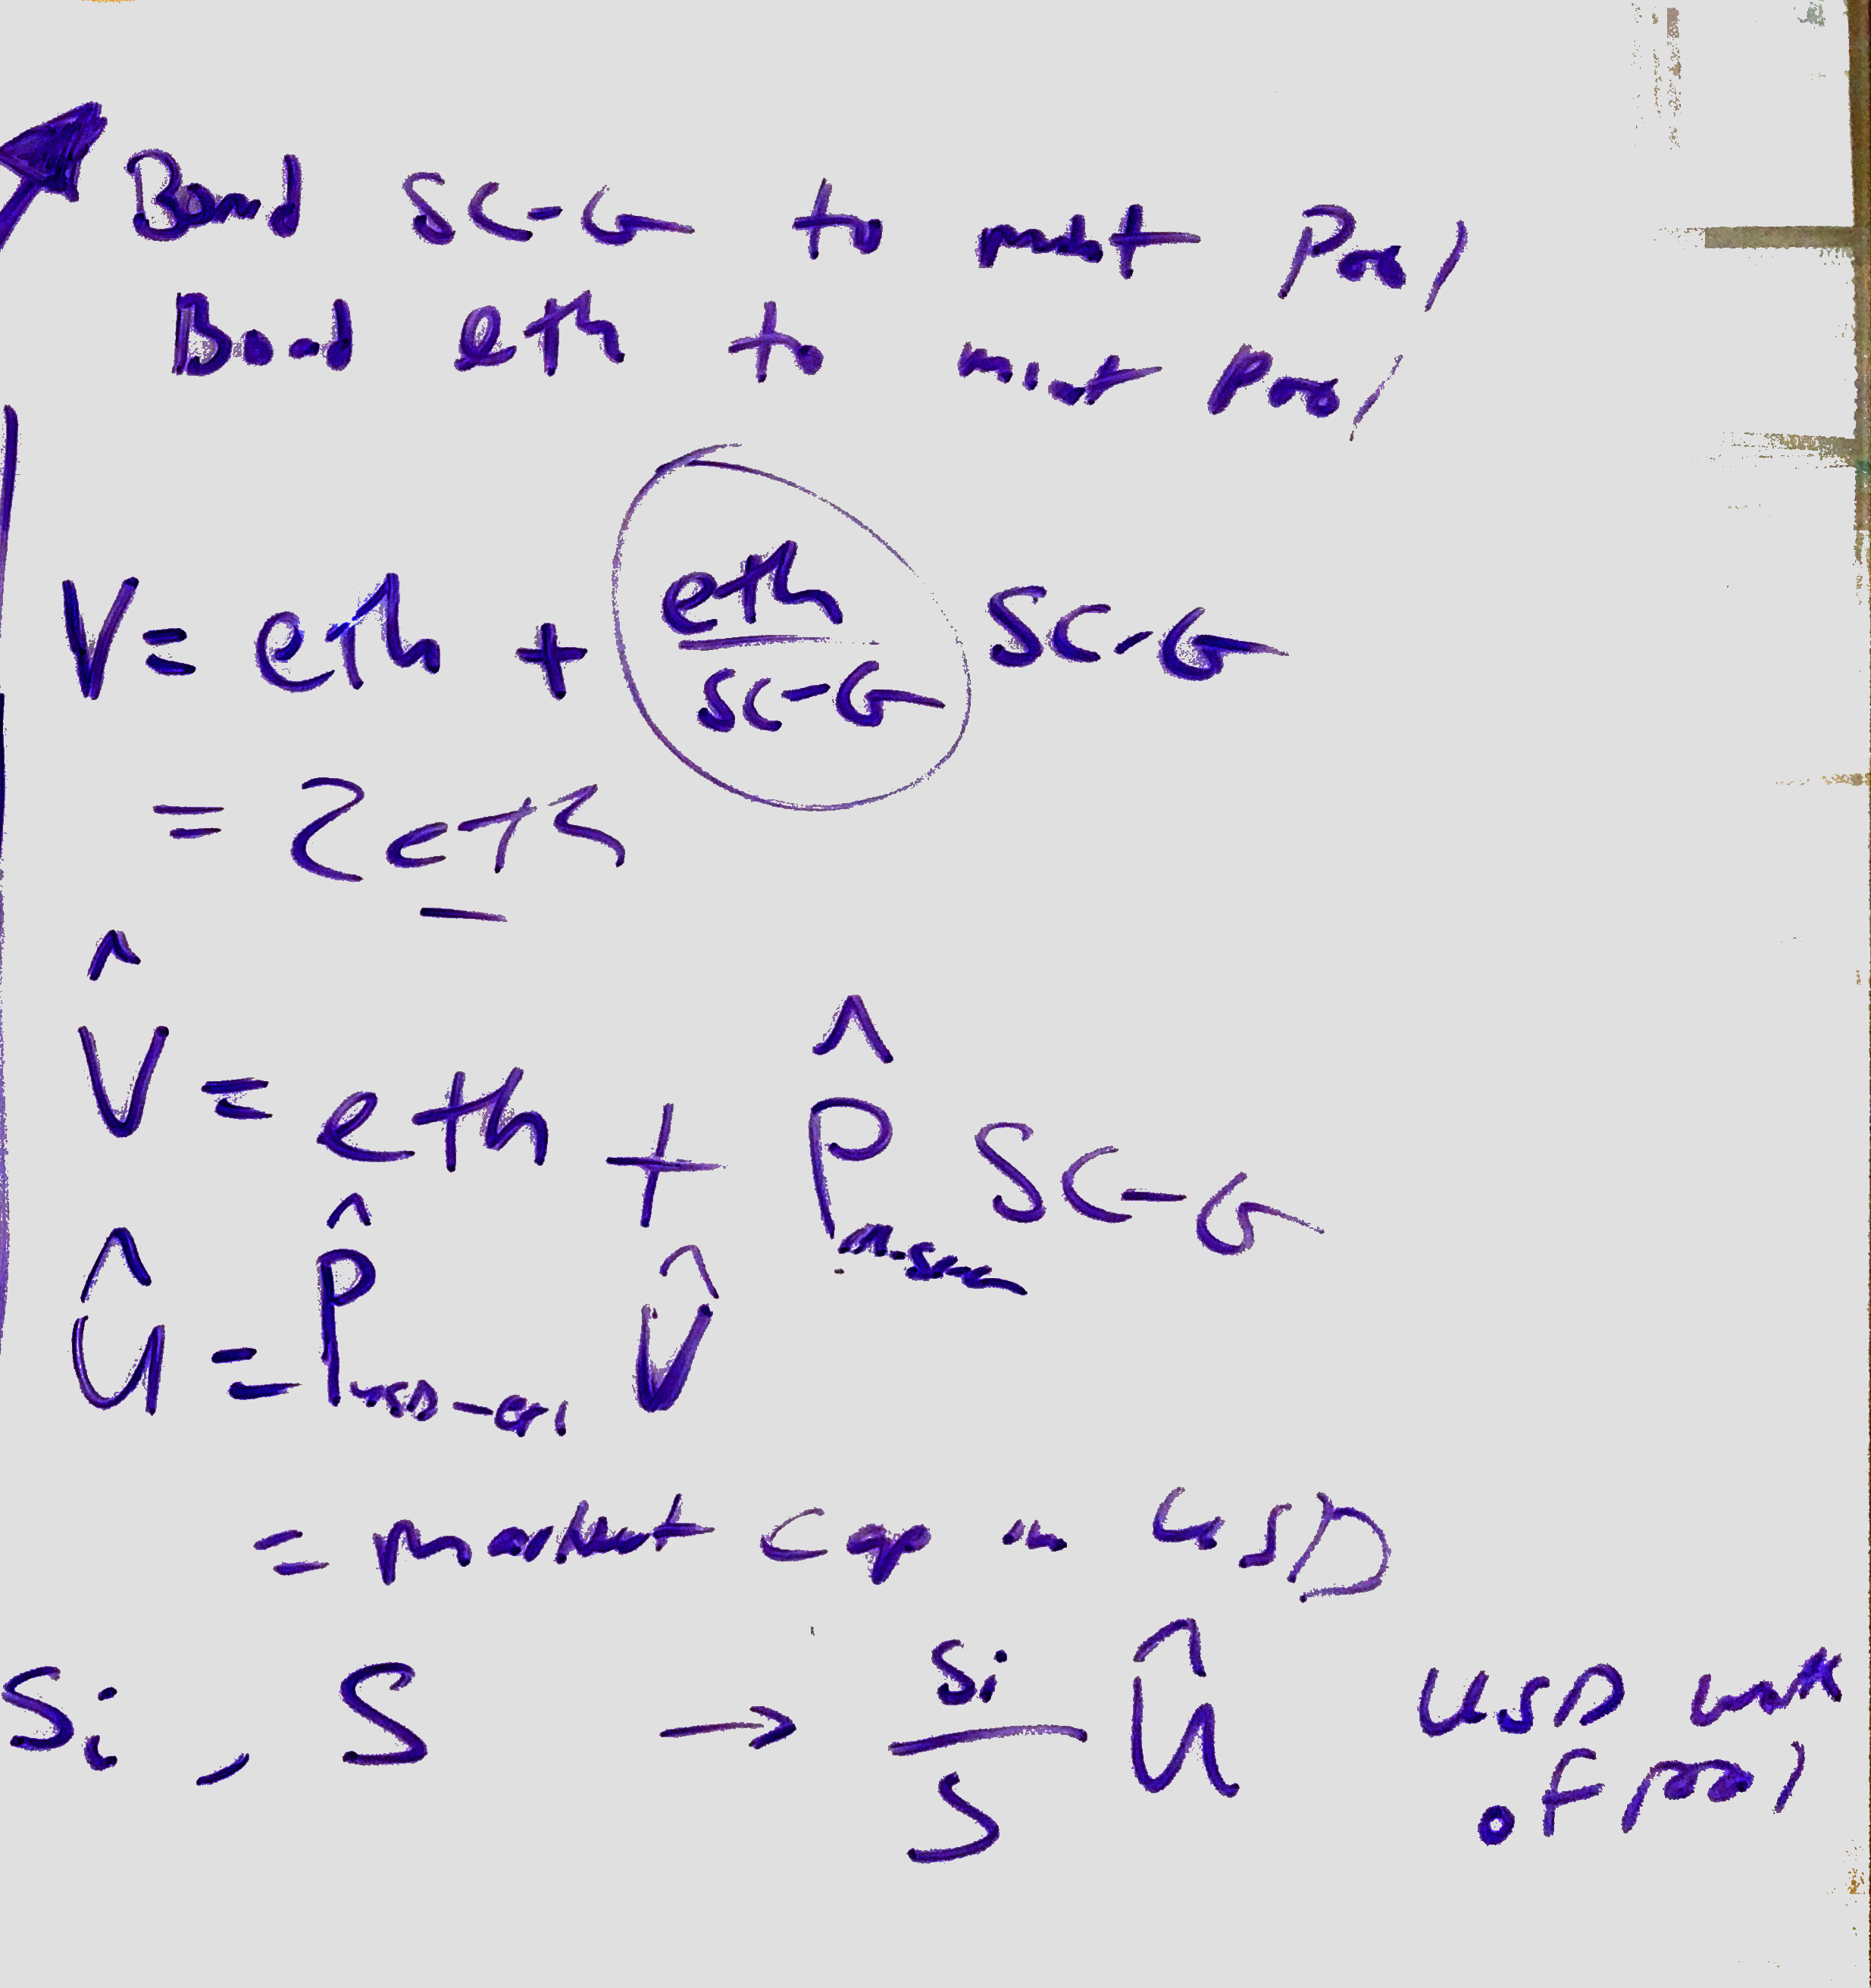 Bond SC-G to mint Pool
Bond eth to mint Pool
V = eth + eth/SC-G SC-G
= 2 eth
V̂ = eth + P̂ SC-G
Û = P̂ USD-eth V̂
= market cap in USD
Si , S → Si/S Û USD worth
of pool